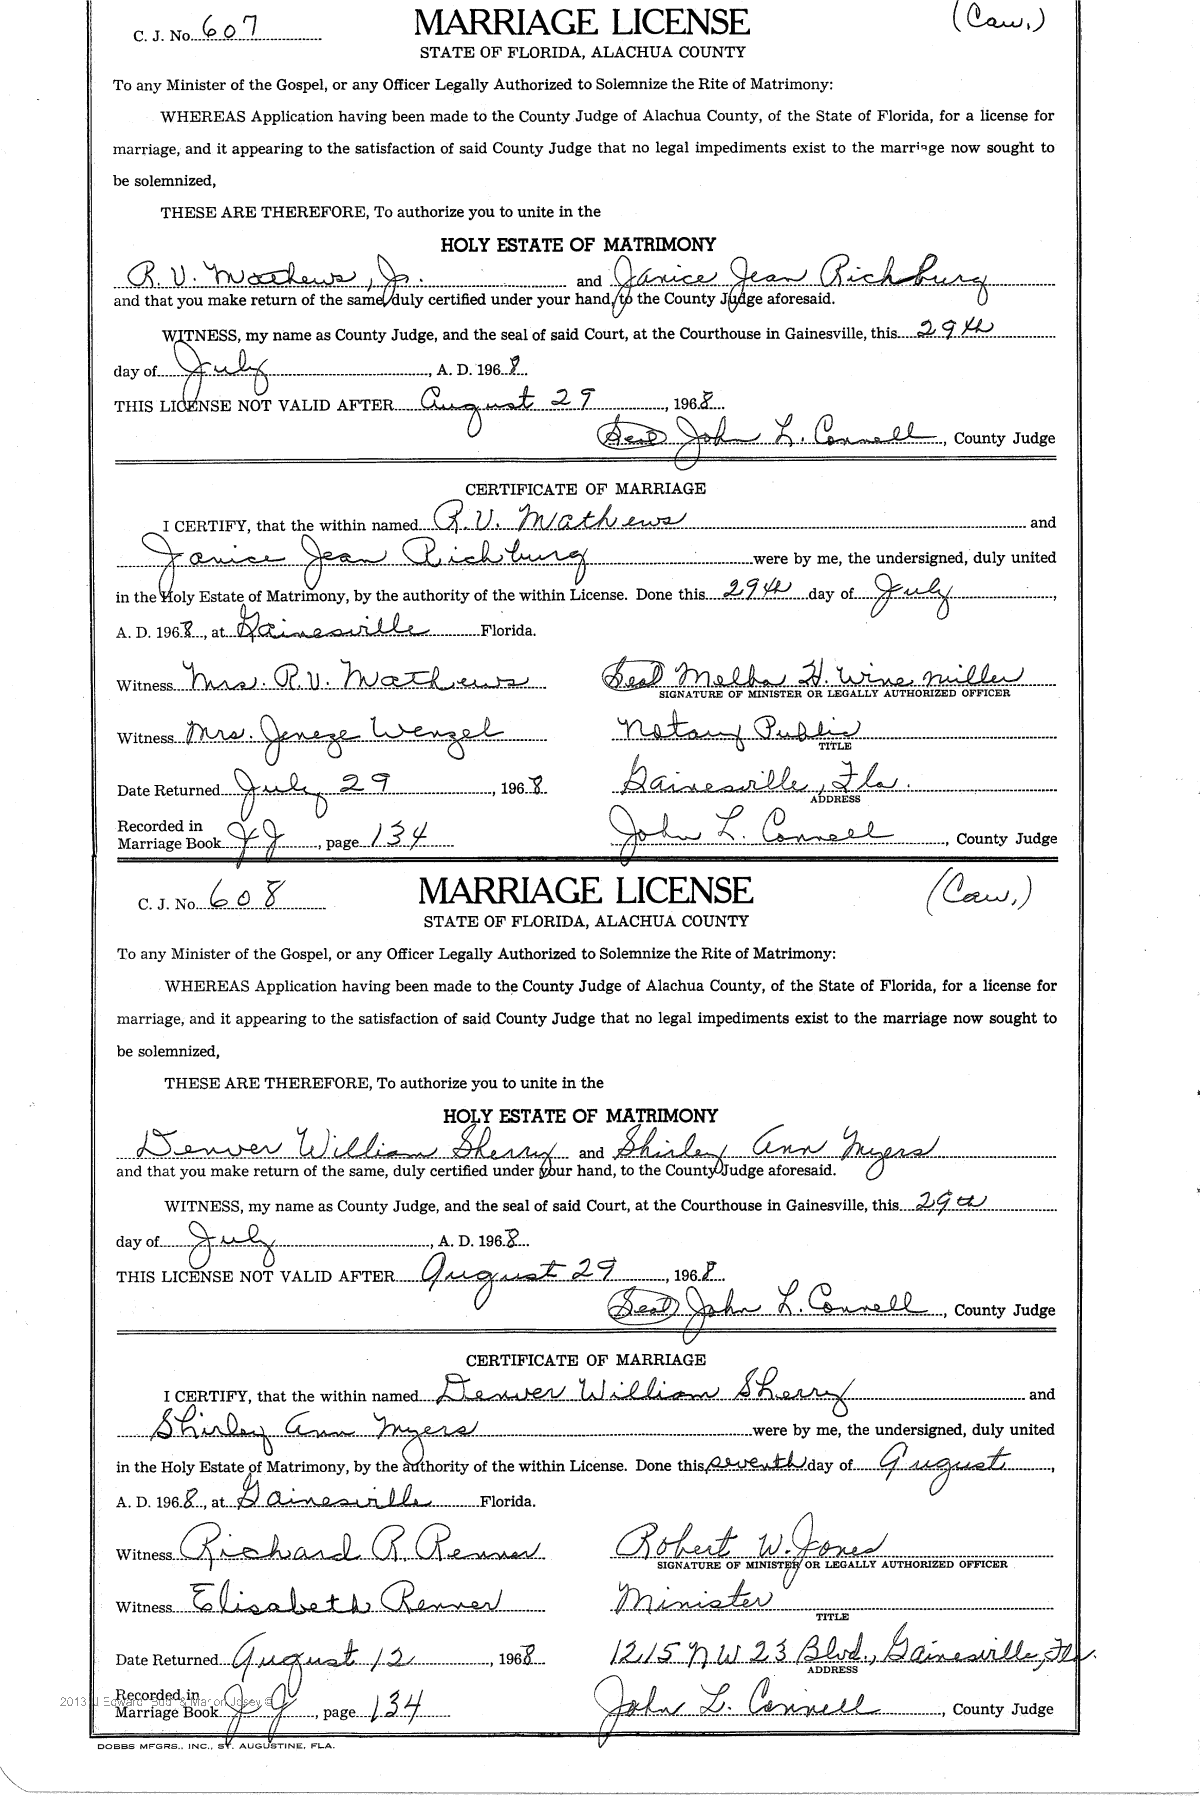 C. J. No. 607 MARRIAGE LICENSE (Cau.)
STATE OF FLORIDA, ALACHUA COUNTY
To any Minister of the Gospel, or any Officer Legally Authorized to Solemnize the Rite of Matrimony:
WHEREAS Application having been made to the County Judge of Alachua County, of the State of Florida, for a license for
marriage, and it appearing to the satisfaction of said County Judge that no legal impediments exist to the marriage now sought to
be solemnized,
THESE ARE THEREFORE, To authorize you to unite in the
HOLY ESTATE OF MATRIMONY
R. V. Mathews, Jr. and Janice Jean Richburg
and that you make return of the same, duly certified under your hand, to the County Judge aforesaid.
WITNESS, my name as County Judge, and the seal of said Court, at the Courthouse in Gainesville, this 29th
day of July, A. D. 1968
THIS LICENSE NOT VALID AFTER August 29, 1968
(Seal) John L. Connell, County Judge
CERTIFICATE OF MARRIAGE
I CERTIFY, that the within named R. V. Mathews and
Janice Jean Richburg were by me, the undersigned, duly united
in the Holy Estate of Matrimony, by the authority of the within License. Done this 29th day of July,
A. D. 1968, at Gainesville Florida.
Witness Mrs. R. V. Mathews (Seal) Melba H. Winemiller
SIGNATURE OF MINISTER OR LEGALLY AUTHORIZED OFFICER
Witness Mrs. Wenzel Notary Public
TITLE
Date Returned July 29, 1968 Gainesville, Fla.
ADDRESS
Recorded in
Marriage Book JJ, page 134 John L. Connell, County Judge
C. J. No. 608 MARRIAGE LICENSE (Cau.)
STATE OF FLORIDA, ALACHUA COUNTY
To any Minister of the Gospel, or any Officer Legally Authorized to Solemnize the Rite of Matrimony:
WHEREAS Application having been made to the County Judge of Alachua County, of the State of Florida, for a license for
marriage, and it appearing to the satisfaction of said County Judge that no legal impediments exist to the marriage now sought to
be solemnized,
THESE ARE THEREFORE, To authorize you to unite in the
HOLY ESTATE OF MATRIMONY
Denver William Sherry and Shirley Ann Myers
and that you make return of the same, duly certified under your hand, to the County Judge aforesaid.
WITNESS, my name as County Judge, and the seal of said Court, at the Courthouse in Gainesville, this 29th
day of July, A. D. 1968
THIS LICENSE NOT VALID AFTER August 29, 1968
(Seal) John L. Connell, County Judge
CERTIFICATE OF MARRIAGE
I CERTIFY, that the within named Denver William Sherry and
Shirley Ann Myers were by me, the undersigned, duly united
in the Holy Estate of Matrimony, by the authority of the within License. Done this seventh day of August,
A. D. 1968, at Gainesville Florida.
Witness Richard R. Renner Robert W. Jones
SIGNATURE OF MINISTER OR LEGALLY AUTHORIZED OFFICER
Witness Elisabeth Renner Minister
TITLE
Date Returned August 12, 1968 1215 NW 23 Blvd., Gainesville, Fla.
ADDRESS
Recorded in
Marriage Book JJ, page 134 John L. Connell, County Judge
DOBBS MFGRS., INC., ST. AUGUSTINE, FLA.